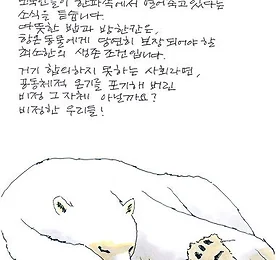 노숙인들이 한파속에서 얼어죽고 있다는
소식을 듣습니다.
따뜻한 밥과 방 한칸은,
항온동물에게 당연히 보장되어야 할
최소한의 생존 조건입니다.
거기 합의하지 못하는 사회라면,
공동체적 온기를 포기해 버린
비정 그 자체 아닐까요?
비정한 우리들!